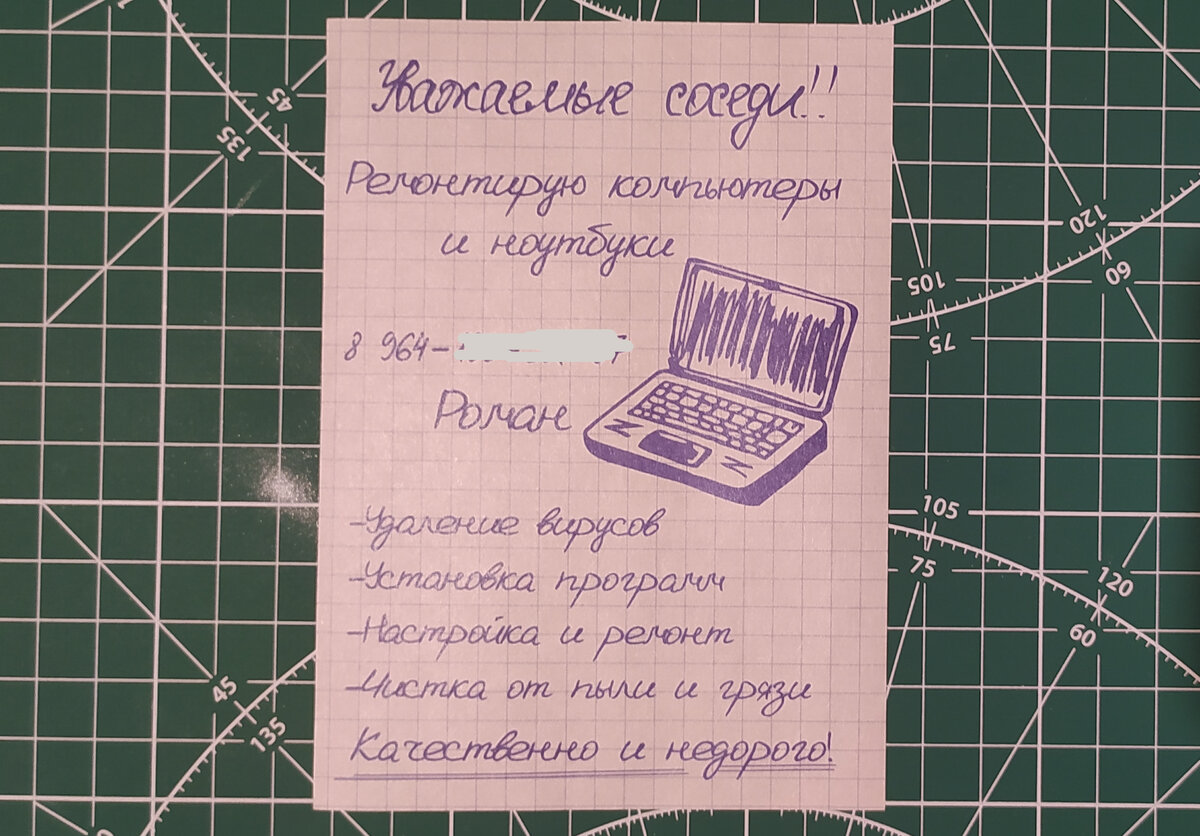 Уважаемые соседи!!
Ремонтирую компьютеры
и ноутбуки
8 964-
Роман
-Удаление вирусов
-Установка программ
-Настройка и ремонт
-Чистка от пыли и грязи
Качественно и недорого!
45
135
120
60
105
75
105
75
120
60
45
135